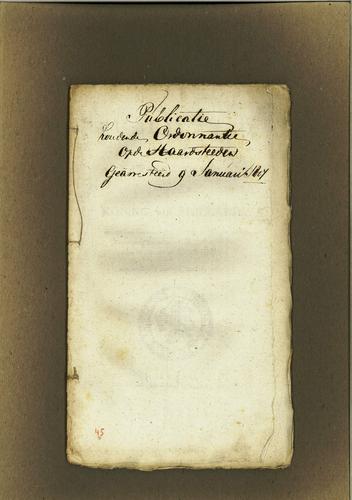 Publicatie
houdende Ordonnantie
Op de Haardsteeden
Gearresteerd 9 Januarij 1807
45